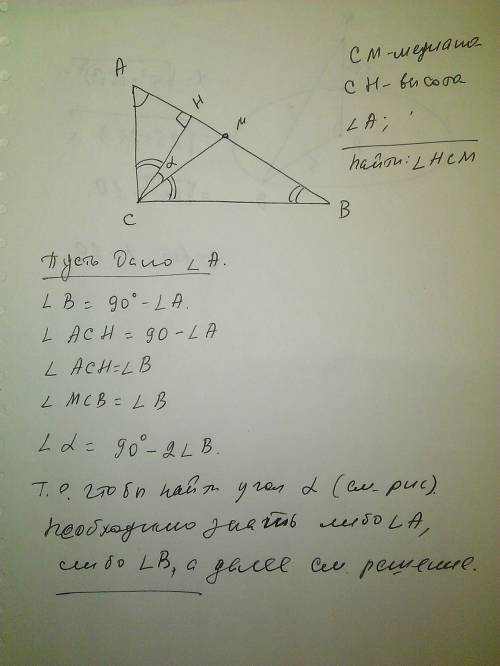 CM - медиана
CH - высота
∠A;
Найти: ∠HCM
A
H
M
α
C
B
Пусть дано ∠A.
∠B = 90° - ∠A.
∠ACH = 90 - ∠A
∠ACH = ∠B
∠MCB = ∠B
∠α = 90° - 2∠B.
Т.о. чтобы найти угол α (см. рис).
необходимо знать либо ∠A,
либо ∠B, а далее см. решение.